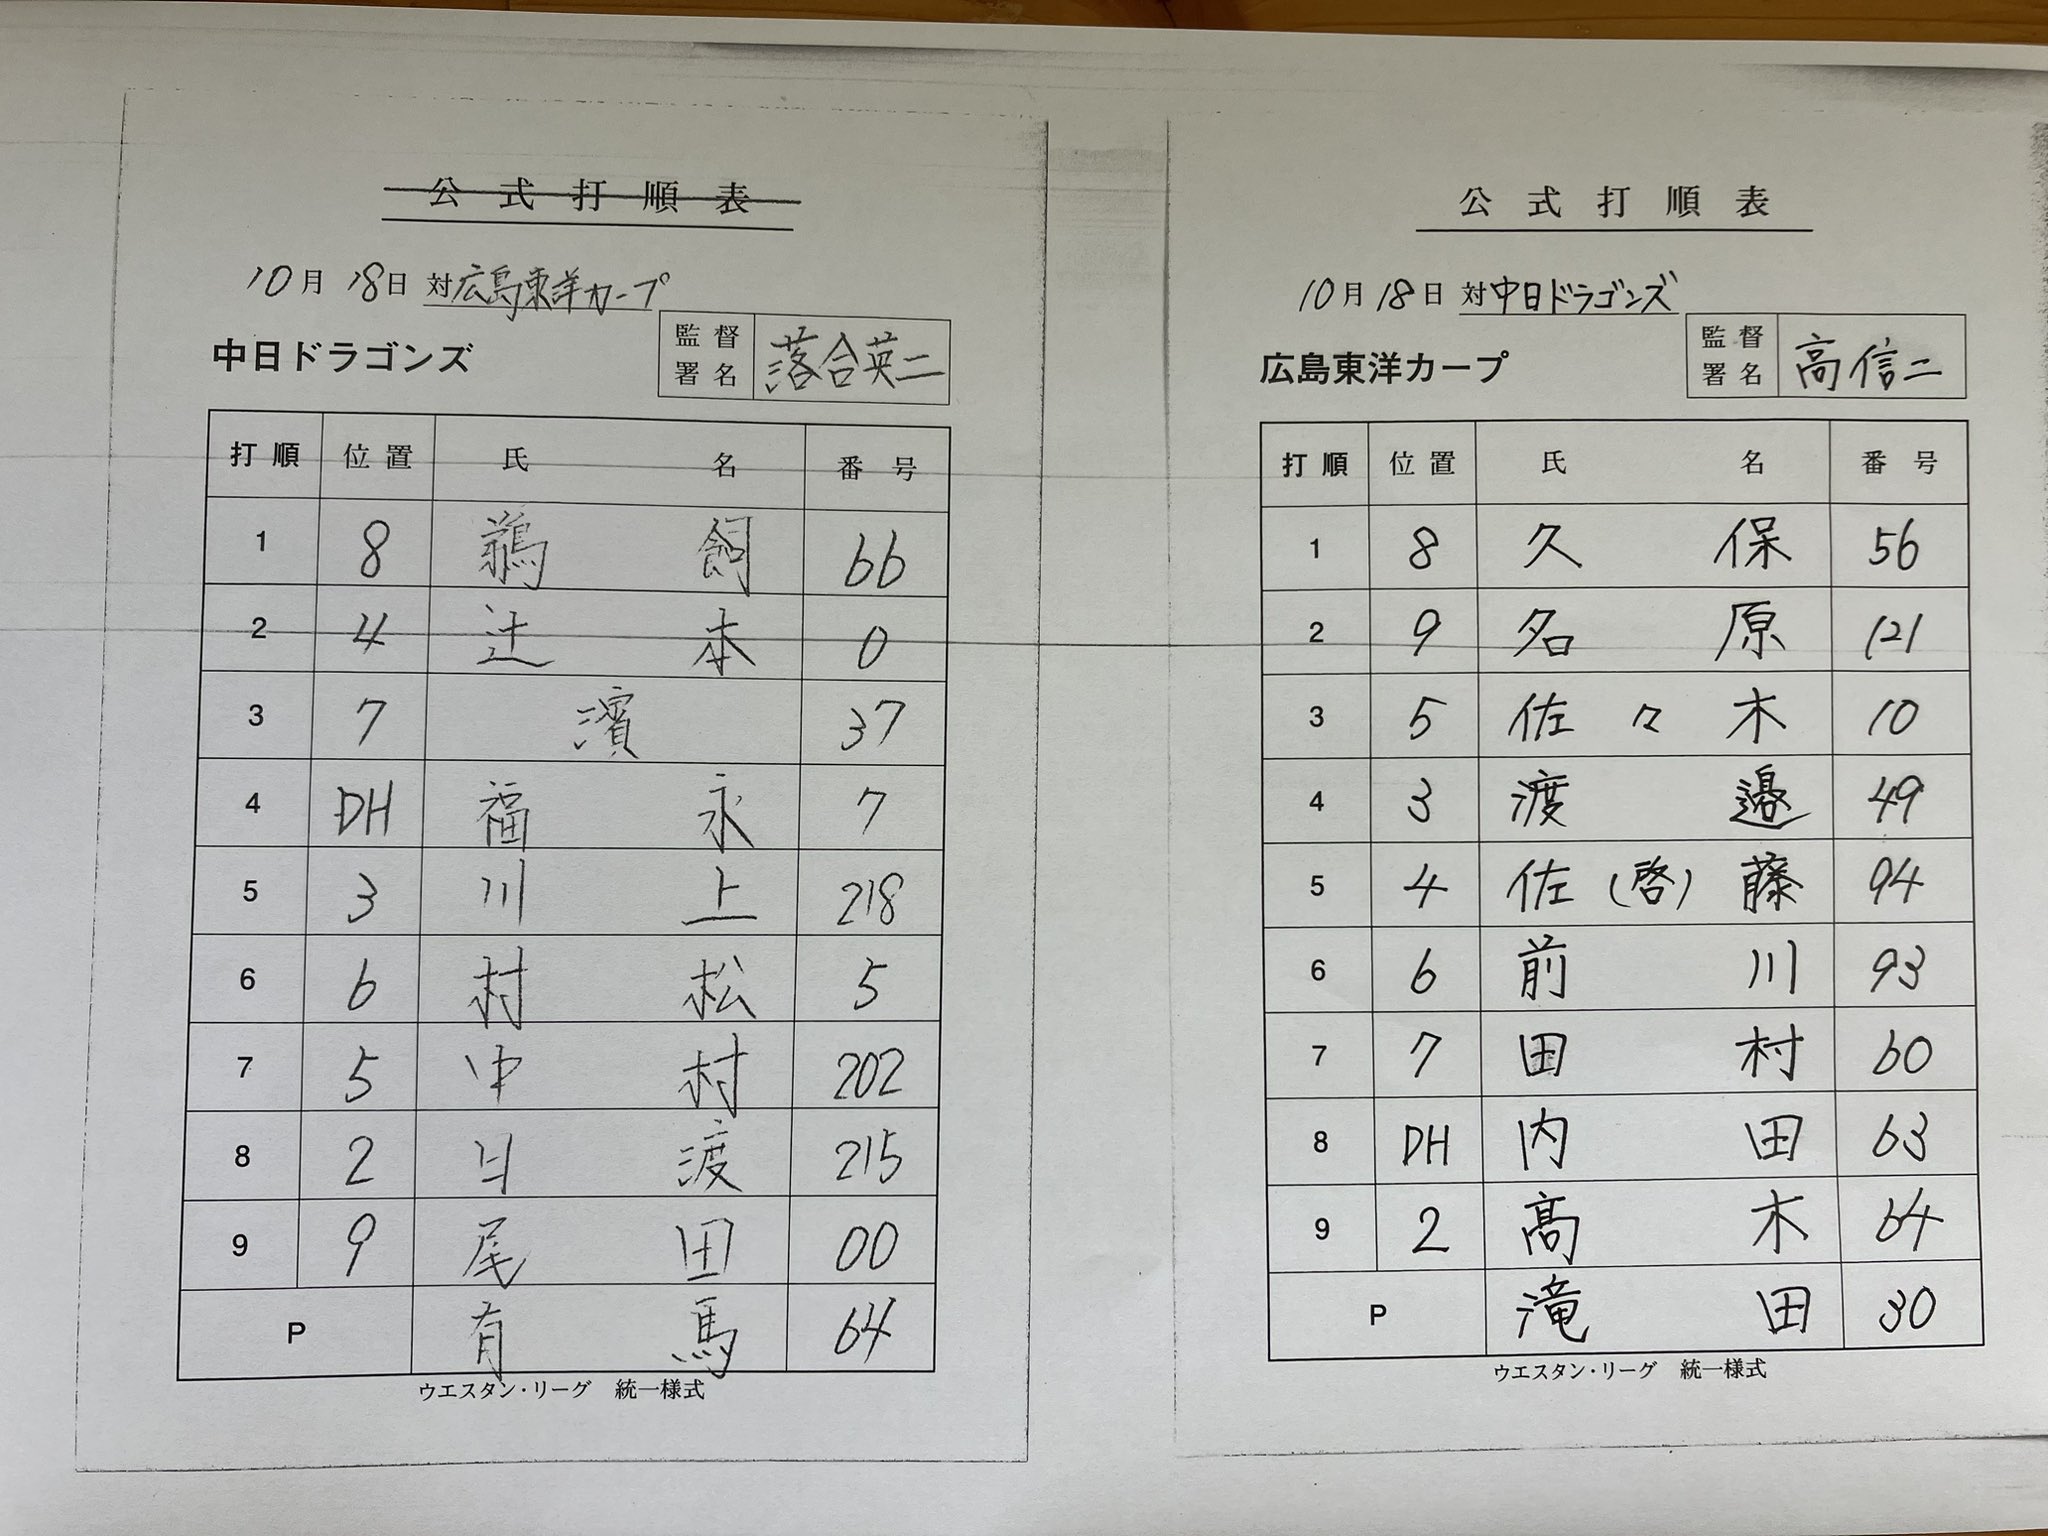 公式打順表
10月18日 対広島東洋カープ
中日ドラゴンズ
監督署名 落合英二
打順 位置 氏名 番号
1 8 鵜飼 66
2 4 辻本 0
3 7 濱 37
4 DH 福永 7
5 3 川上 218
6 6 村松 5
7 5 中村 202
8 2 日渡 215
9 9 尾田 00
P 有馬 64
ウエスタン・リーグ 統一様式
公式打順表
10月18日 対中日ドラゴンズ
広島東洋カープ
監督署名 高信二
打順 位置 氏名 番号
1 8 久保 56
2 9 名原 121
3 5 佐々木 10
4 3 渡邉 49
5 4 佐(啓)藤 94
6 6 前川 93
7 7 田村 60
8 DH 内田 63
9 2 髙木 64
P 滝田 30
ウエスタン・リーグ 統一様式